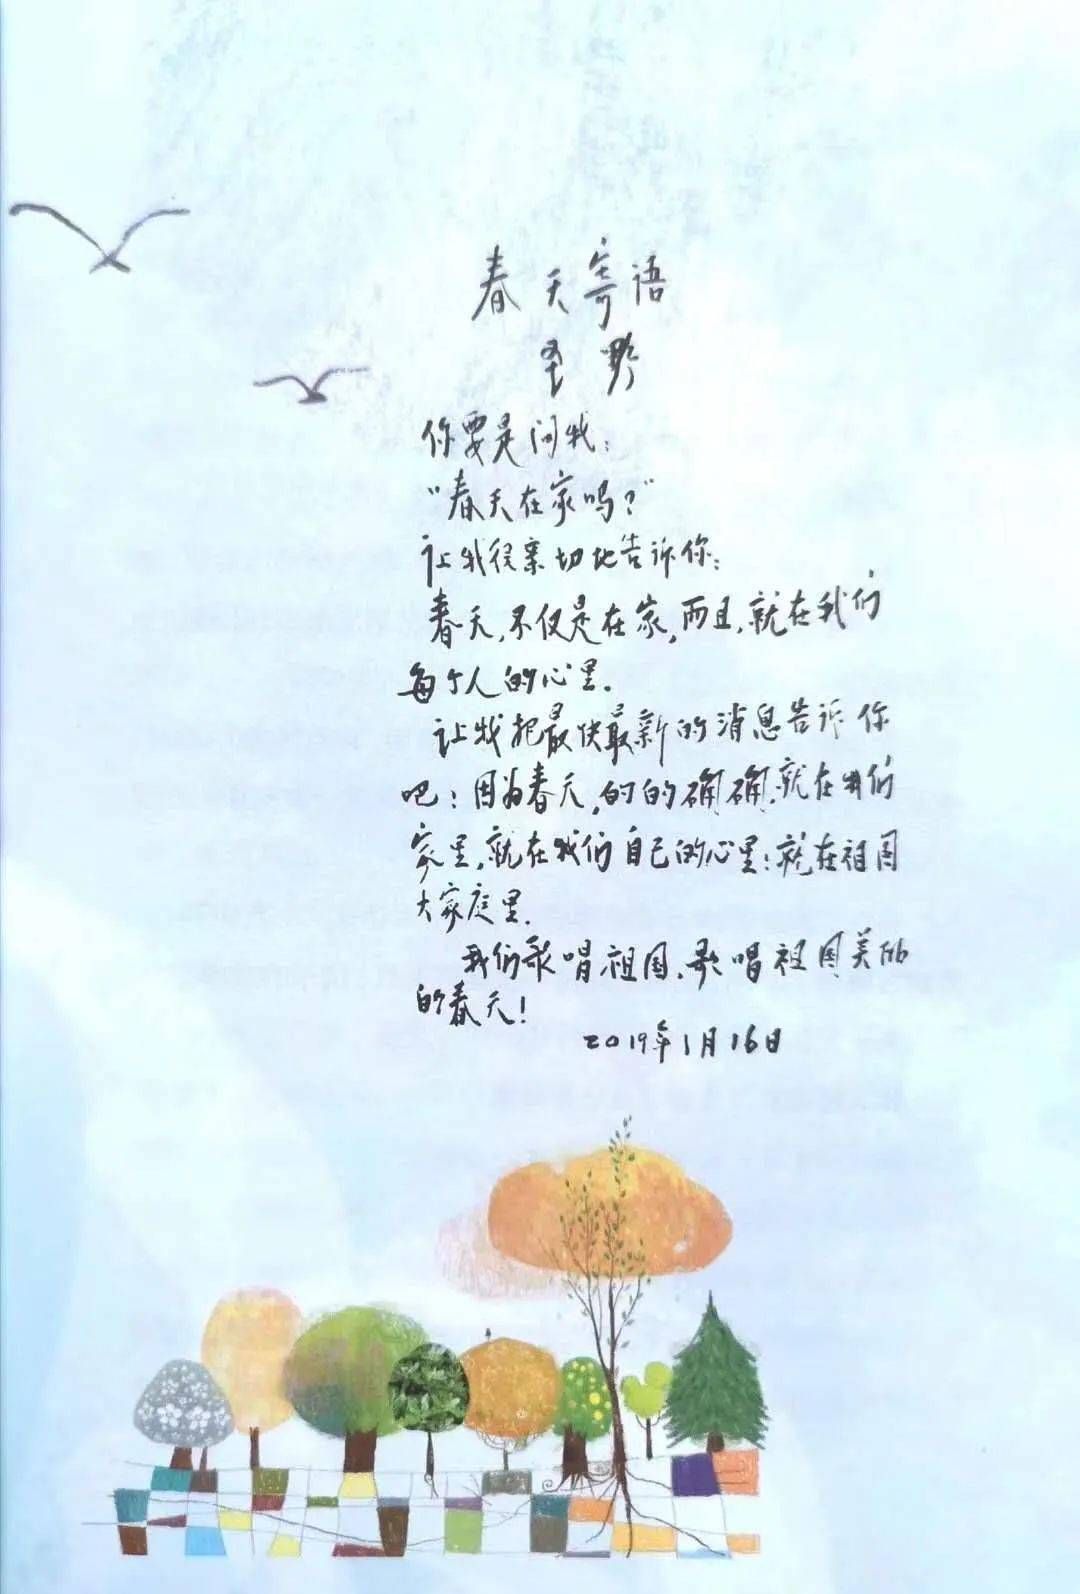 春天寄语
圣野
你要是问我：
“春天在家吗？”
让我很亲切地告诉你：
春天，不仅是在家，而且，就在我们
每个人的心里。
让我把最快最新的消息告诉你
吧：因为春天，的的确确，就在我们
家里，就在我们自己的心里；就在祖国
大家庭里。
我们歌唱祖国，歌唱祖国美丽
的春天！
2019年1月16日